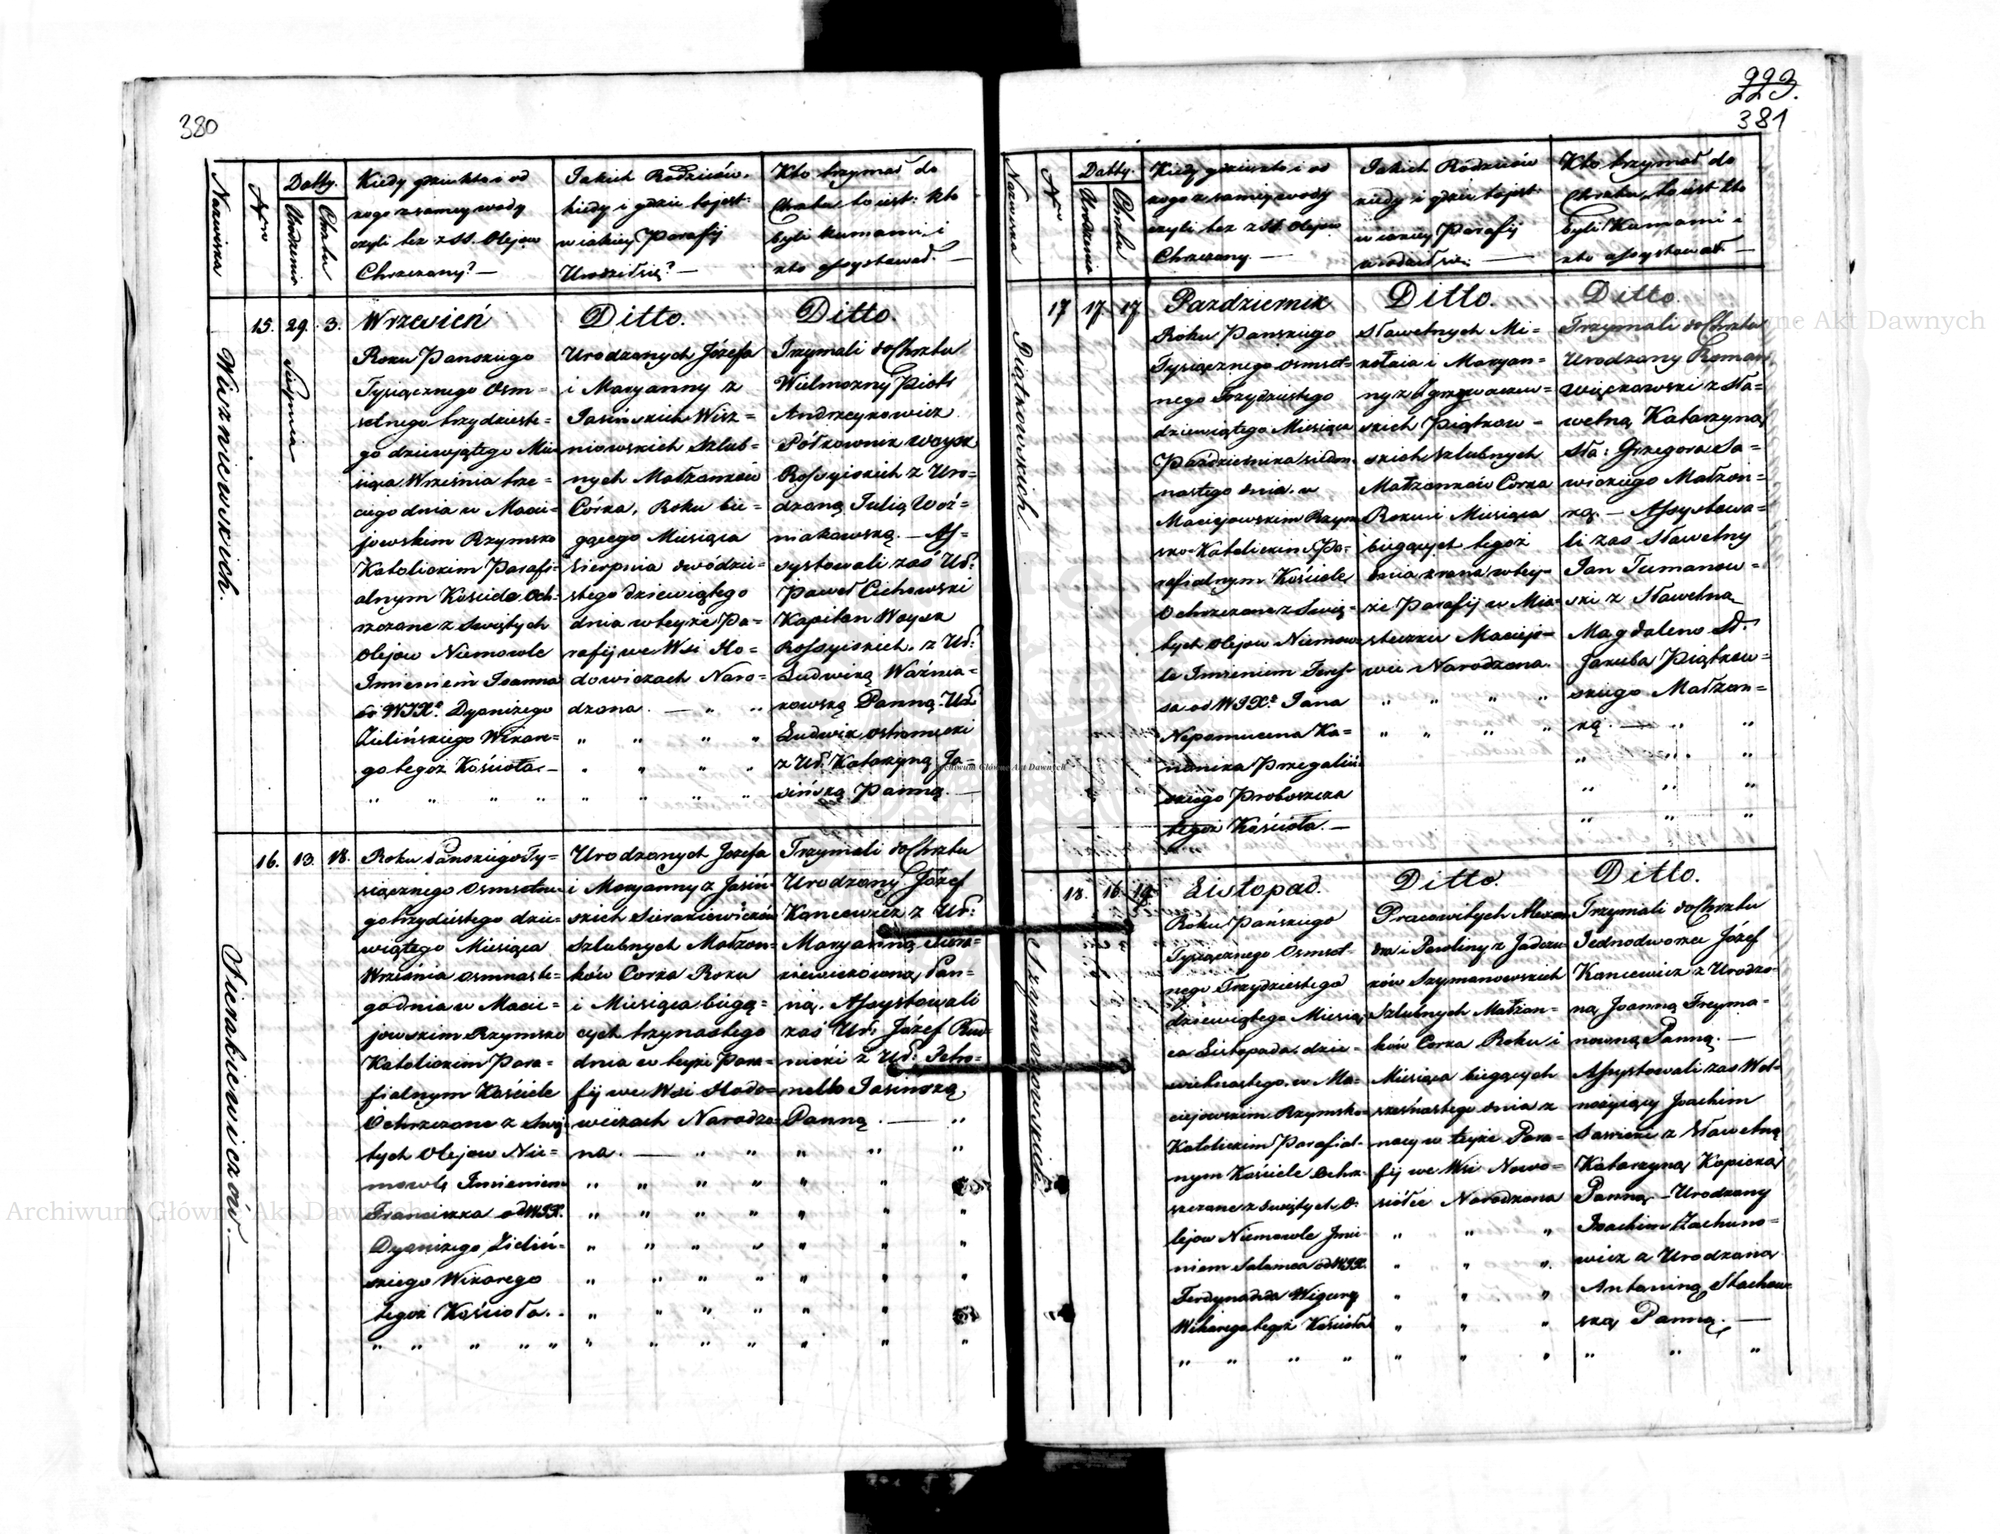 380
Nazwiska
Nro
Datty.
Urodzenia
Chrztu
Kiedy gdzie kto i od
kogo z samey wody
czyli też z SS. Olejow
Chrzczony? —
Jakich Rodziców,
kiedy i gdzie to jest
w jakiey Parafij
Urodził się? —
Kto trzymał do
Chrztu to iest: kto
byli kumami, i
kto assystował. —
Wiszniewskich.
15. 29. 3.
Sierpnia
Wrzesień
Roku Panskiego
Tysiącznego Osm=
setnego trzydzieste=
go dziewiątego Mie=
siąca Września trze=
ciego dnia w Macie=
jowskim Rzymsko
Katolickim Parafi=
alnym Kościele Och=
rzczone z Swiętych
Olejow Niemowle
Imieniem Joanna
od WJX. Dyonizego
Zielińskiego Wikar=
go tegoż Kościoła. —
Ditto.
Urodzonych Józefa
i Maryanny z
Jasińskich Wisz=
niewskich Szlub=
nych Małżonków
Córka, Roku bie=
gącego Miesiąca
Sierpnia dwódzie=
stego dziewiątego
dnia w teyże Pa=
rafij we Wsi Ho=
dowiczach Naro=
dzona. —
Ditto.
Trzymali do Chrztu
Wielmożny Piotr
Andrzeykowicz
Półkownik Woysk
Rossyiskich z Uro=
dzoną Julią Woź=
niakowską. — As=
systowali zaś Ur:
Paweł Cichowski
Kapitan Woysk
Rossyiskich, z Ur:
Ludwiką Woźnia=
kowską Panną. Ur:
Ludwik Ostromęcki
z Ur: Katarzyną Ja=
sińską Panną. —
Sierakiewiczów. —
16. 13. 18.
Roku Panskiego Ty=
siącznego Osmsetne=
go trzydziestego dzie=
wiątego Miesiąca
Września osmnaste=
go dnia w Macie=
jowskim Rzymsko
Katolickim Para=
fialnym Kościele
Ochrzczone z Swię=
tych Olejow Nie=
mowlę Imieniem
Franciszka od WJX.
Dyonizego Zieliń=
skiego Wikarego
tegoż Kościoła. —
Urodzonych Jozefa
i Maryanny z Jasiń=
skich Sierakiewiczów
Szlubnych Małżon=
ków Corka Roku
i Miesiąca biegą=
cych trzynastego
dnia w teyże Para=
fij we Wsi Hodo=
wiczach Narodzo=
na. —
Trzymali do Chrztu
Urodzony Józef
Kancewicz z Ur:
Maryanną Siera=
kiewiczowną Pan=
ną. Assystowali
zaś Ur: Józef
z Ur: Petro=
nellą Jasinską
Panną. —
223.
381
Nazwiska
Nro
Datty.
Urodzenia
Chrztu
Kiedy gdzie kto i od
kogo z samey wody
czyli też z SS. Olejow
Chrzczony —
Jakich Rodziców
kiedy i gdzie to jest
w jakiey Parafij
urodził się. —
Kto trzymał do
Chrztu, to iest kto
byli Kumami i
kto assystował —
Piątkowskich
17 17 17
Pazdziernik
Roku Panskiego
Tysiącznego osmset=
nego Trzydziestego
dziewiątego Miesiąca
Października siedm=
nastego dnia w
Maciejowskim Rzym=
sko=Katolickim Pa=
rafialnym Kościele
Ochrzczone z Swię=
tych Olejow Niemow=
le Imieniem Tere=
sa od WJX. Jana
Nepomucena Ka=
nonika Przegaliń=
skiego Proboszcza
tegoż Kościoła. —
Ditto.
Sławetnych Mi=
kołaia i Maryan=
ny z
skich Piątkow=
skich szlubnych
Małżonków Corka
Roku i Miesiąca
biegących tegoż
dnia z rana w tey=
że Parafij w Mia=
steczku Maciejo=
wie Narodzona.
Ditto.
Trzymali do Chrztu
Urodzony Roman
Więckowski z Sła=
wetną Katarzyną
Sła: Grzegora Sa=
wickiego Małżon=
ką. — Assystowa=
li zaś Sławetny
Jan Tumanow=
ski z Sławetną
Magdaleną Sł:
Jakuba Piątkow=
skiego Małżon=
ką. —
Szymanowskich.
18. 16. 19.
Listopad.
Roku Pańskiego
Tysiącznego Osmset=
nego Trzydziestego
dziewiątego Miesią=
ca Listopada dzie=
więtnastego w Ma=
ciejowskim Rzymsko=
Katolickim Parafial=
nym Kościele Ochrz=
szczone z Swiętych O=
lejow Niemowle Imie=
niem Salomea od WJX.
Ferdynanda Wigury
Wikarego tegoż Kościoła
Ditto.
Pracowitych Alexan=
dra i Pauliny z Jadczu=
ków Szymanowskich
Szlubnych Małżon=
ków Corka Roku i
Miesiąca biegących
szesnastego dnia z
nocy w teyże Para=
fij we Wsi Nowo=
siółce Narodzona
Ditto.
Trzymali do Chrztu
Jednodworzec Józef
Kancewicz z Urodzo=
ną Joanną Freyma=
nowną Panną. —
Assystowali zaś Wol=
nożyiący Joachim
Sawicki z Sławetną
Katarzyną Kopicką
Panną. — Urodzony
Joachim Zachuno=
wicz a Urodzoną
Antoniną Stachow=
ską Panną. —
Archiwum Główne Akt Dawnych
Archiwum Główne Akt Dawnych
Archiwum Główne Akt Dawnych